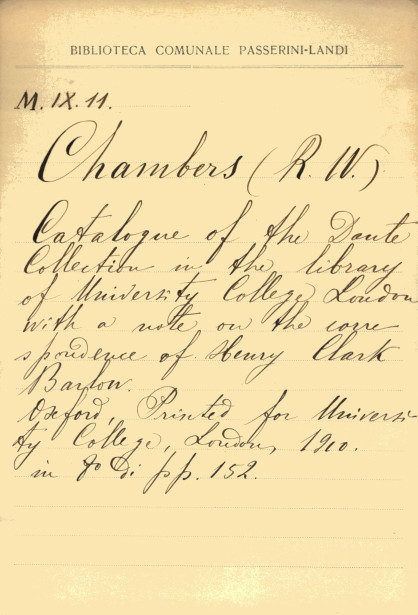 BIBLIOTECA COMUNALE PASSERINI-LANDI
M. IX. 11.
Chambers (R. W.)
Catalogue of the Dante
Collection in the library
of University College, London
with a note on the corre
spondence of Henry Clark
Barlow.
Oxford, Printed for Universi-
ty College, London, 1910.
in 8º di pp. 152.